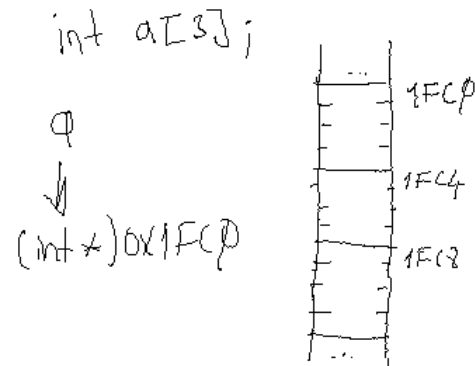 int a[3];
a
(int *)0x1FC0
...
1FC0
1FC4
1FC8
...